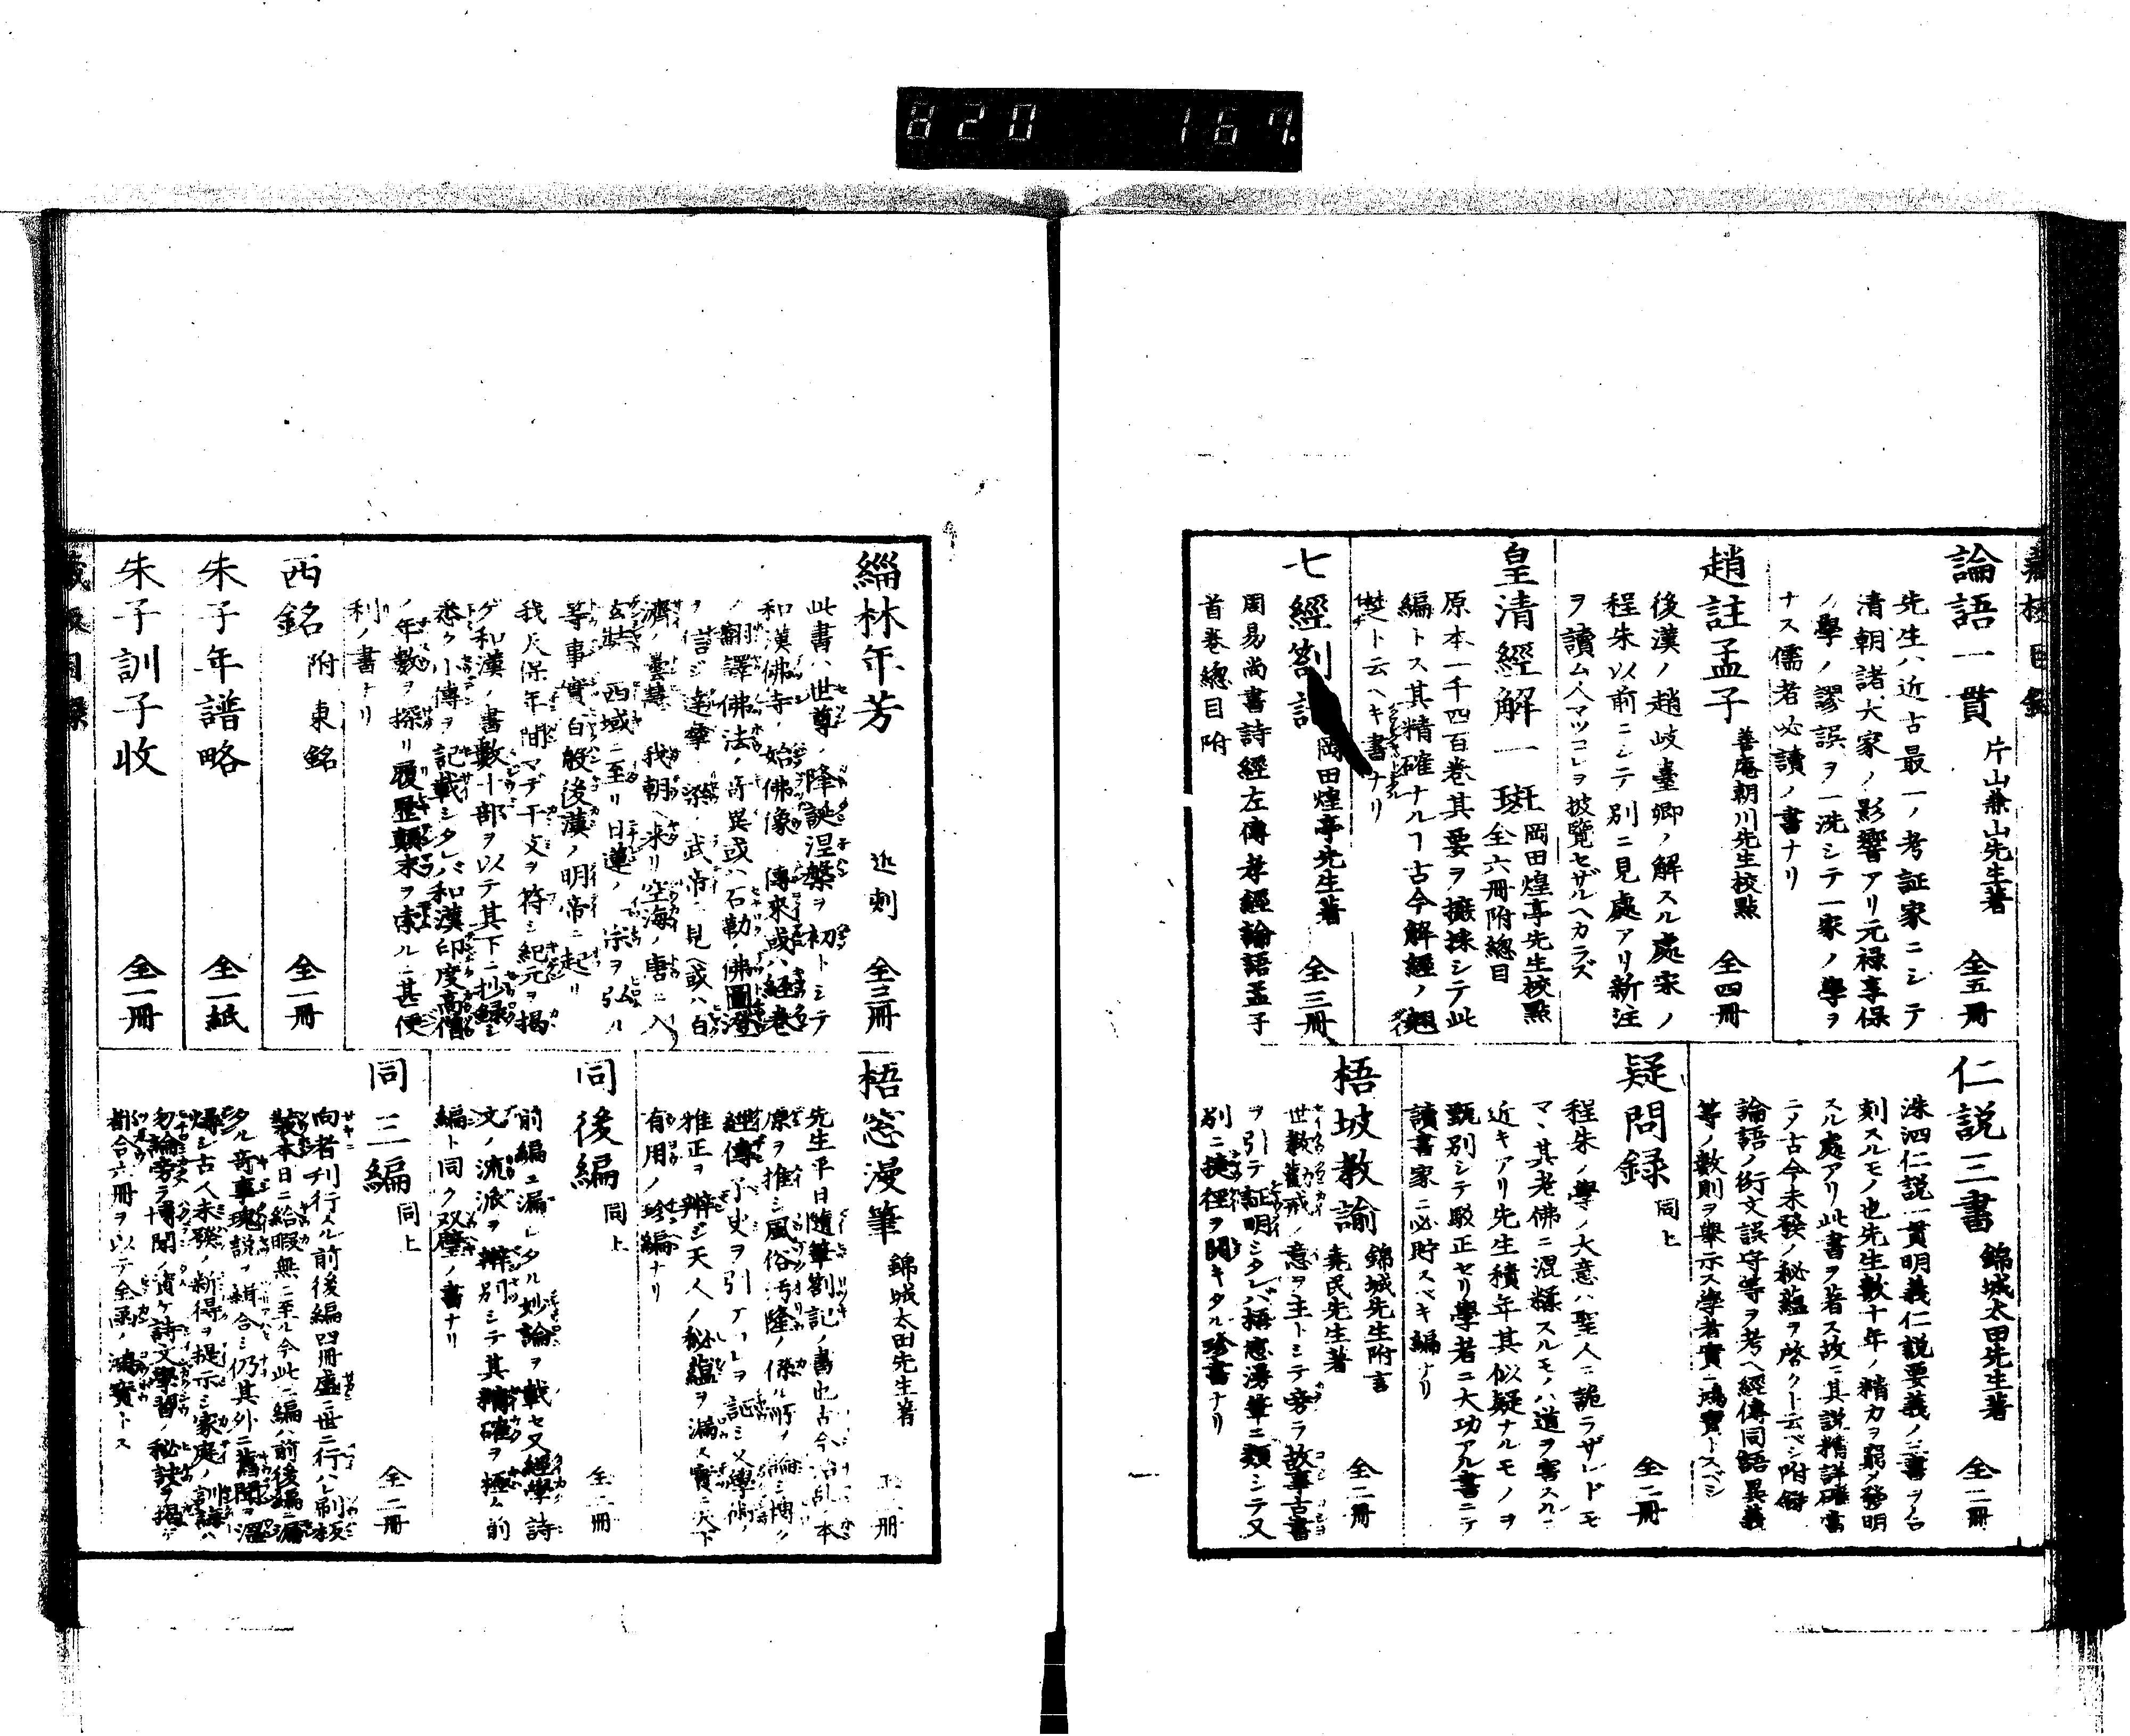 820 167
論語一貫 片山兼山先生著 全五冊
先生ハ近古最一ノ考証家ニシテ
清朝諸大家ノ影響アリ元禄享保
ノ學ノ謬誤ヲ一洗シテ一家ノ學ヲ
ナス儒者必讀ノ書ナリ
趙註孟子 善庵朝川先生校點 全四冊
後漢ノ趙岐臺卿ノ解スル處宋ノ
程朱以前ニシテ別ニ見處アリ新注
ヲ讀ム人マツコレヲ披覽セザルヘカラズ
皇清經解一斑 岡田煌亭先生校點 全六冊附總目
原本一千四百卷其要ヲ摭採シテ此
編トス其精確ナルヿ古今解經ノ翹
楚ト云ヘキ書ナリ
七經劄記 岡田煌亭先生著 全三冊
周易尚書詩經左傳孝經論語孟子
首卷總目附
仁説三書 錦城太田先生著 全二冊
洙泗仁説一貫明義仁説要義ノ三書ヲ合
刻スルモノ也先生數十年ノ精力ヲ窮メ發明
スル處アリ此書ヲ著ス故ニ其説精詳確當
ニノ古今未發ノ秘蘊ヲ啓クト云ベシ附錄
論語ノ衍文誤字等ヲ考ヘ經傳同語異義
等ノ數則ヲ舉示ス學者實ニ鴻寶トスベシ
疑問録 同上 全二冊
程朱ノ學ノ大意ハ聖人ニ詭ラザレドモ
マヽ其老佛ニ混糅スルモノハ道ヲ害スルニ
近キアリ先生積年其似疑ナルモノヲ
甄別シテ駁正セリ學者ニ大功アル書ニテ
讀書家ニ必貯スベキ編ナリ
梧坡教諭 錦城先生附言 堯民先生著 全二冊
世教箴戒ノ意ヲ主トシテ旁ラ故事古書
ヲ引テ証明シタレバ梧窓漫筆ニ類シテ又
別ニ捷徑ヲ開キタル珍書ナリ
緇林年芳 近刻 全三冊
此書ハ世尊ノ降誕涅槃ヲ初トシテ
和漢佛寺ノ始佛像ノ傳來或ハ經卷
ノ翻譯佛法ノ奇異或ハ石勒ノ佛圖澄
ヲ信ジ達摩ノ梁ノ武帝ニ見ヘ或ハ百
濟ノ曇慧我朝ヘ来リ空海ノ唐ニ入
玄奘ノ西域ニ至リ日蓮ノ一宗ヲ弘ル
等事實百般後漢ノ明帝ニ起リ
我天保年間マデ干支ヲ符シ紀元ヲ揭
ゲ和漢ノ書數十部ヲ以テ其下ニ抄録シ
悉ク小傳ヲ記載シタレバ和漢印度高僧
ノ年數ヲ探リ履歴顛末ヲ索ルニ甚便
利ノ書ナリ
西銘 附東銘 全一冊
朱子年譜略 全一紙
朱子訓子收 全一冊
梧窓漫筆 錦城太田先生著 全二冊
先生平日隨筆劄記ノ書也古今治乱ノ本
原ヲ推シ風俗汚隆ノ係ル所ヲ論シ博ク
經傳子史ヲ引テコレヲ証シ又學術ノ
雅正ヲ辨ジ天人ノ秘蘊ヲ漏ス實ニ天下
有用ノ珍編ナリ
同後編 同上 全二冊
前編ニ漏レタル妙論ヲ載セ又經學詩
文ノ流派ヲ辨別シテ其精確ヲ極ム前
編ト同ク双璧ノ書ナリ
同三編 同上 全二冊
向者刊行スル前後編四冊盛ニ世ニ行ハレ刷板
装本日ニ給暇無ニ至ル今此三編ハ前後編ニ漏
タル奇事瑰説ヲ緝合シ仍其外ニ舊聞ヲ溫
燖シ古人未發ノ新得ヲ提示シ家庭ノ訓誨ハ
勿論旁ラ博聞ノ資ケ詩文學習ノ秘訣ヲ揭グ
都合六冊ヲ以テ全函ノ鴻寶トス